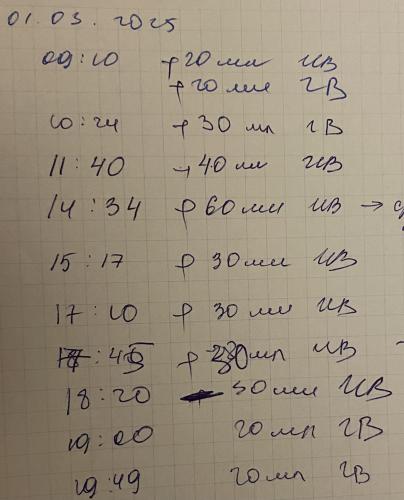 01.03.2025
09:10 +20 мл ЦВ
+20 мл ГВ
10:24 +30 мл ГВ
11:40 +40 мл ЦВ
14:34 +60 мл ЦВ →
15:17 + 30 мл ЦВ
17:10 + 30 мл ЦВ
+ 30 мл ЦВ
18:20 30 мл ЦВ
19:00 20 мл ГВ
19:49 20 мл ГВ